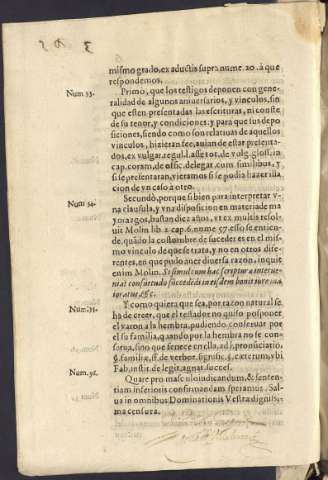 mismo grado, ex aductis supra nume. 20. à que
respondemos.
Num 33.
Primo, que los testigos deponen con gene-
ralidad de algunos aniuersarios, y vinculos, sin
que esten presentadas las escrituras, ni conste
de su tenor, y condiciones, y para que sus depo-
siciones, siendo como son relatiuas de aquellos
vinculos, hizieran fee, auian de estar presenta-
dos, ex vulgar. regul. l. asse toto, de
in
cap. coram, de offic. delegat. cum similibus, y
si se presentaran, vieramos si se podia hazer illa-
cion de vn caso à otro.
Num 34.
Secundò, porque si bien para interpretar v-
na clausula, y vna disposicion en materia de ma
yorazgos, bastan diez años, vt ex multis resol-
uit Molin lib. 2. cap. 6. nume 57. esso se entien-
de, quando la costumbre de suceder es en el mis-
mo vinculo de que se trata, y no en otros dife-
rentes, en que pudo auer diuersa razon, inquie
enim Molin. Et simul cum hac scriptura interue-
niat consuetudo succedendi in eisdem bonis iure ma-
ioratus, &c.
Num. 35.
Y como quiera que sea, por razon natural se
ha de creer, que el testador no quiso posponer
el varon a la hembra, pudiendo conseruar por
el su familia, quando por la hembra no se con-
serua, sino que fenece en ella, ad l. pronuciatio,
§. familiæ, ff. de verbor. signific. §. cæterum, vbi
Fab. instit. de legit. agnat. succes.
Num. 36.
Quare pro masculo iudicandum, & senten-
tiam inferioris confirmandam speramus. Sal-
ua in omnibus Dominationis Vestræ dignis-
ima censura.